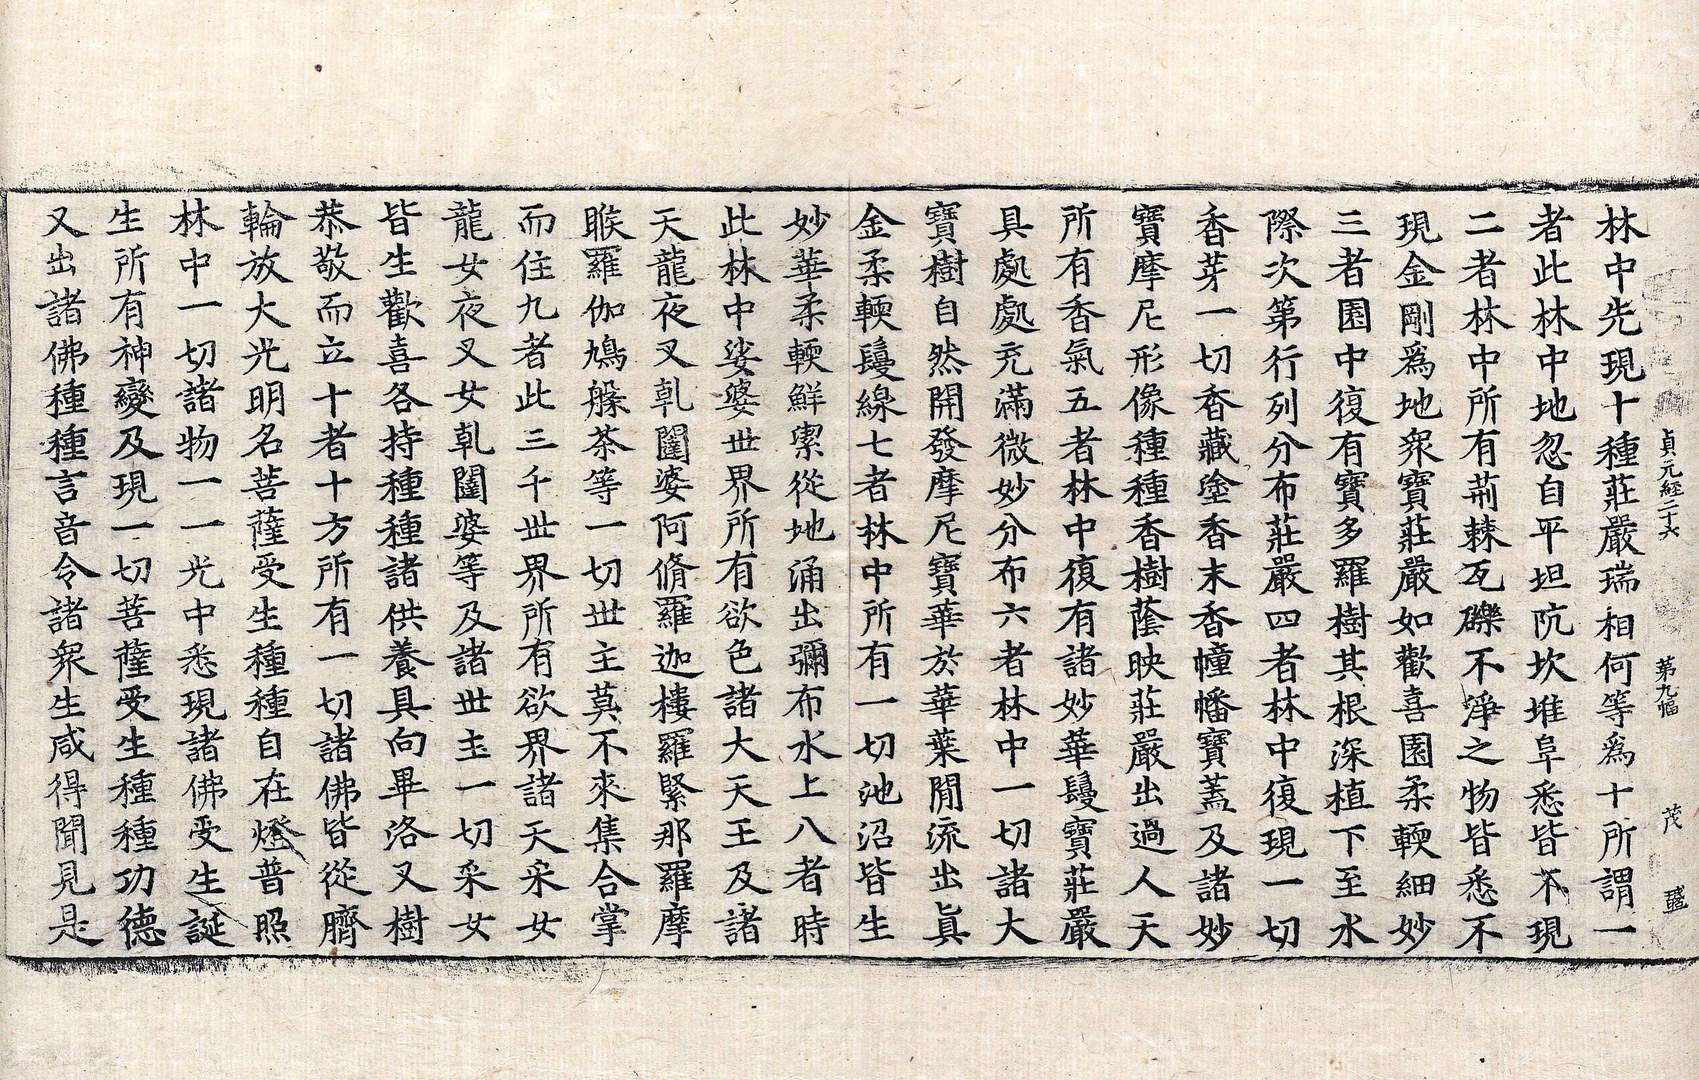 貞元經二十六 第九幅 茂
林中先現十種莊嚴瑞相何等爲十所謂一
者此林中地忽自平坦阬坎堆阜悉皆不現
二者林中所有荊棘瓦礫不淨之物皆悉不
現金剛爲地衆寶莊嚴如歡喜園柔輭細妙
三者園中復有寶多羅樹其根深植下至水
際次第行列分布莊嚴四者林中復現一切
香芽一切香藏塗香末香幢幡寶蓋及諸妙
寶摩尼形像種種香樹蔭映莊嚴出過人天
所有香氣五者林中復有諸妙華鬘寶莊嚴
具處處充滿微妙分布六者林中一切諸大
寶樹自然開發摩尼寶華於華葉閒流出眞
金柔輭鬘線七者林中所有一切池沼皆生
妙華柔輭鮮潔從地涌出彌布水上八者時
此林中娑婆世界所有欲色諸大天王及諸
天龍夜叉乹闥婆阿脩羅迦樓羅緊那羅摩
睺羅伽鳩槃茶等一切世主莫不來集合掌
而住九者此三千世界所有欲界諸天采女
龍女夜叉女乹闥婆等及諸世主一切采女
皆生歡喜各持種種諸供養具向畢洛叉樹
恭敬而立十者十方所有一切諸佛皆從臍
輪放大光明名菩薩受生種種自在燈普照
林中一切諸物一一光中悉現諸佛受生誕
生所有神變及現一切菩薩受生種種功德
又出諸佛種種言音令諸衆生咸得聞見是